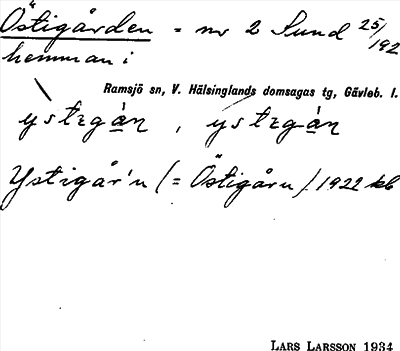 Östigården = nr 2 Sund 25/192
hemman i
Ramsjö sn, V. Hälsinglands domsagas tg, Gävleb. l.
ystigán, ystigán
Ystigår'n (= Östigårn) 1922 kb
LARS LARSSON 1934